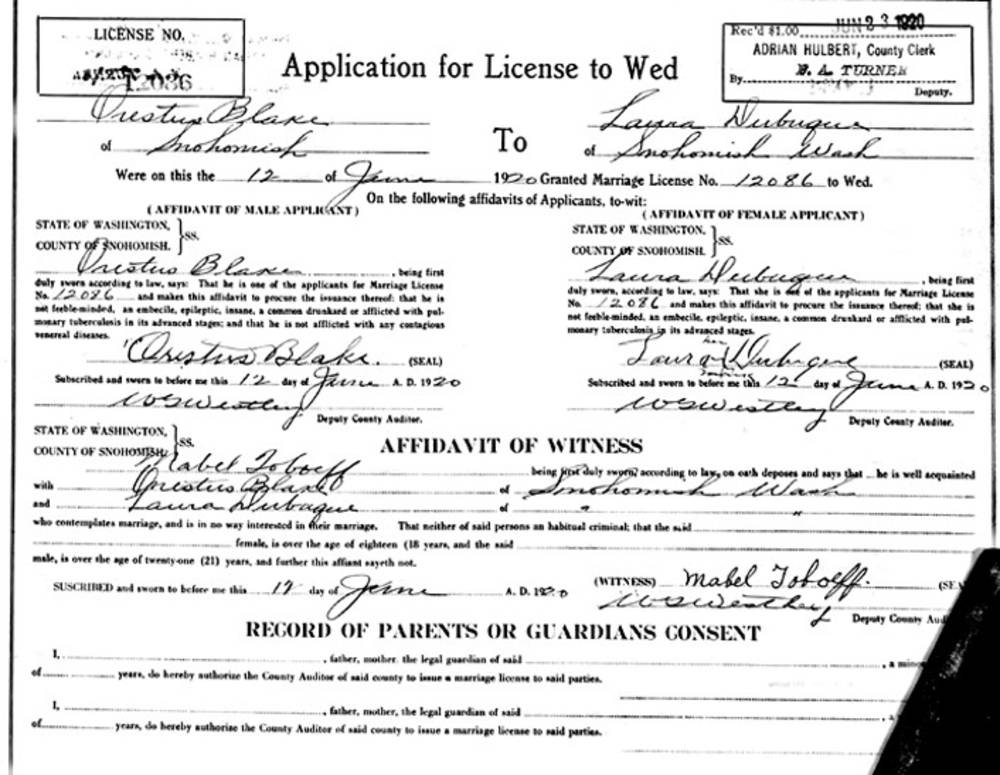 LICENSE NO.
12086
Application for License to Wed
JUN 23 1920
Rec'd $1.00
ADRIAN HULBERT, County Clerk
By B. A. TURNER
Deputy.
Orestus Blake
of Snohomish
To
Laura Dubuque
of Snohomish Wash
Were on this the 12 of June 1920 Granted Marriage License No. 12086 to Wed.
On the following affidavits of Applicants, to-wit:
(AFFIDAVIT OF MALE APPLICANT)
STATE OF WASHINGTON,
COUNTY OF SNOHOMISH. } ss.
Orestus Blake, being first
duly sworn according to law, says: That he is one of the applicants for Marriage License
No. 12086 and makes this affidavit to procure the issuance thereof: that he is
not feeble-minded, an embecile, epileptic, insane, a common drunkard or afflicted with pul-
monary tuberculosis in its advanced stages; and that he is not afflicted with any contagious
venereal diseases.
Orestus Blake. (SEAL)
Subscribed and sworn to before me this 12 day of June A. D. 1920
W G Westley
Deputy County Auditor.
(AFFIDAVIT OF FEMALE APPLICANT)
STATE OF WASHINGTON,
COUNTY OF SNOHOMISH. } ss.
Laura Dubuque, being first
duly sworn, according to law, says: That she is one of the applicants for Marriage License
No. 12086 and makes this affidavit to procure the issuance thereof; that she is
not feeble-minded, an embecile, epileptic, insane, a common drunkard or afflicted with pul-
monary tuberculosis in its advanced stages.
her
Laura Dubuque (SEAL)
Subscribed and sworn to before me this 12 day of June A. D. 1920
W G Westley
Deputy County Auditor.
STATE OF WASHINGTON,
COUNTY OF SNOHOMISH. } ss.
AFFIDAVIT OF WITNESS
Mabel Toboeff being first duly sworn, according to law, on oath deposes and says that he is well acquainted
with Orestus Blake of Snohomish Wash
and Laura Dubuque of " "
who contemplates marriage, and is in no way interested in their marriage. That neither of said persons an habitual criminal; that the said
female, is over the age of eighteen (18 years, and the said
male, is over the age of twenty-one (21) years, and further this affiant sayeth not.
SUSCRIBED and sworn to before me this 12 day of June A. D. 1920
(WITNESS) Mabel Toboeff.
W G Westley
Deputy County
RECORD OF PARENTS OR GUARDIANS CONSENT
I, , father, mother. the legal guardian of said , a
of years, do hereby authorize the County Auditor of said county to issue a marriage license to said parties.
I, , father, mother, the legal guardian of said , a
of years, do hereby authorize the County Auditor of said county to issue a marriage license to said parties.